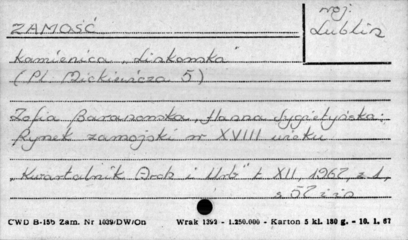 ZAMOŚĆ
woj.
Lublin
Kamienica „Linkowska"
(Pl. Mickiewicza 5)
Zofia Baranowska, Hanna Sygietyńska:
Rynek zamojski w XVIII wieku
„Kwartalnik Arch i Urb" t XII, 1967, z.1,
s 57 i n
CWD B-15b Zam. Nr 1039/DW/On Wrak 1393 - 1.250.000 - Karton 5 kl. 180 g. - 10. 1. 67